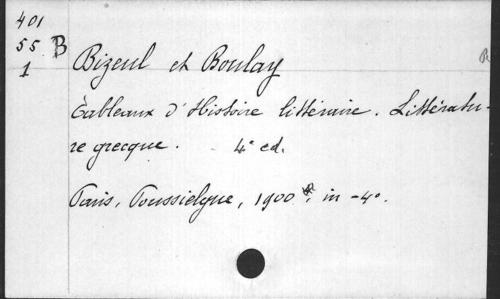 401
55 B
1
Bizeul et Boulay
Tableaux d'Histoire littéraire. Littératu-
re grecque. 4e ed.
Paris, Poussielgue, 1900, in-4o.